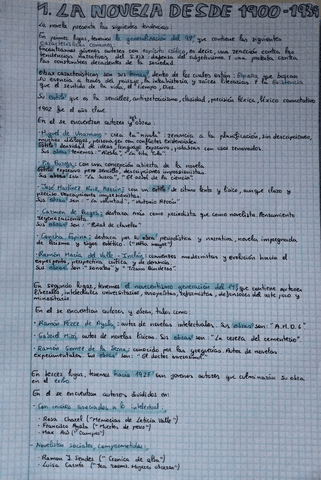 1. LA NOVELA DESDE 1900-1939
La novela presenta las siguientes tendencias:
En primer lugar, tenemos la generación del 98, que contiene las siguientes
características comunes:
Encontramos jóvenes autores con espíritu crítico, es decir, una reacción contra las
tendencias del S.XIX defensa del subjetivismo y una protesta contra
las constantes decadente de la sociedad
Otras características son los temas, dentro de los cuales están: España, que buscan
su esencia a través del paisaje, la intrahistoria y raíces literarias. Y la existencia
que el sentido de la vida, el tiempo, Dios.
Su estilo que es la sencillez, antirretoricismo, claridad, precisión léxica, léxico connotativo
1902 fue el año clave.
En él se encuentran autores y obras:
- Miguel de Unamuno: crea la "nivola": renuncia a la planificación, sin descripciones,
muchos diálogos, personajes con conflictos existenciales.
Estilo: densidad de ideas, lenguaje expresivo, palabras con usos renovados.
Sus obras: tenemos "Niebla", "La tía Tula"
- Pío Baroja: con una concepción abierta de la novela
Estilo expresivo pero sencillo, descripciones impresionistas.
Sus obras son: "La busca", "El árbol de la ciencia"
- José Martínez Ruiz, Azorín: con un estilo de ritmo lento y fluido, aunque claro y
preciso. Descripciones impresionistas.
Sus obras son: "La voluntad", "Antonio Azorín"
- Carmen de Burgos: destaca más como periodista que como novelista. Pensamiento
regeneracionista
Sus obras son: "Puñal de claveles"
- Concha Espina: destaca por la obra periodística y narrativa, novela impregnada
de lirismo y rigor estético. ("Altar mayor")
- Ramón María del Valle-Inclán: comienzos modernistas y evolución hacia el
esperpento, perspectiva crítica y de denuncia.
Sus obras son: "Sonatas" y "Tirano Banderas"
En segundo lugar, tenemos el novecentismo generación del 14, que contiene autores
intelectuales universitarios, europeístas, reformistas, defensores del arte puro y
minoritario
En él se encuentran autores y obras, tales como:
- Ramón Pérez de Ayala: autor de novelas intelectuales. Sus obras son: "A.M.D.G"
- Gabriel Miró: autor de novelas líricas. Sus obras son: "Las cerezas del cementerio"
- Ramón Gómez de la Serna: conocido por las greguerías. Autor de novelas
experimentales. Sus obras son: "El doctor inverosímil"
En tercer lugar, tenemos hacia 1927 con jóvenes autores que culminarán su obra
en el exilio
En él se encuentran autores divididos en:
- Con inicio asociados a lo intelectual:
- Rosa Chacel ("Memorias de Leticia Valle")
- Francisco Ayala ("Muertes de perro")
- Max Aub ("Campos")
- Novelistas sociales, comprometidos:
- Ramón J. Sender ("Crónica de alba")
- Luisa Carnés ("Tea rooms. Mujeres obreras")